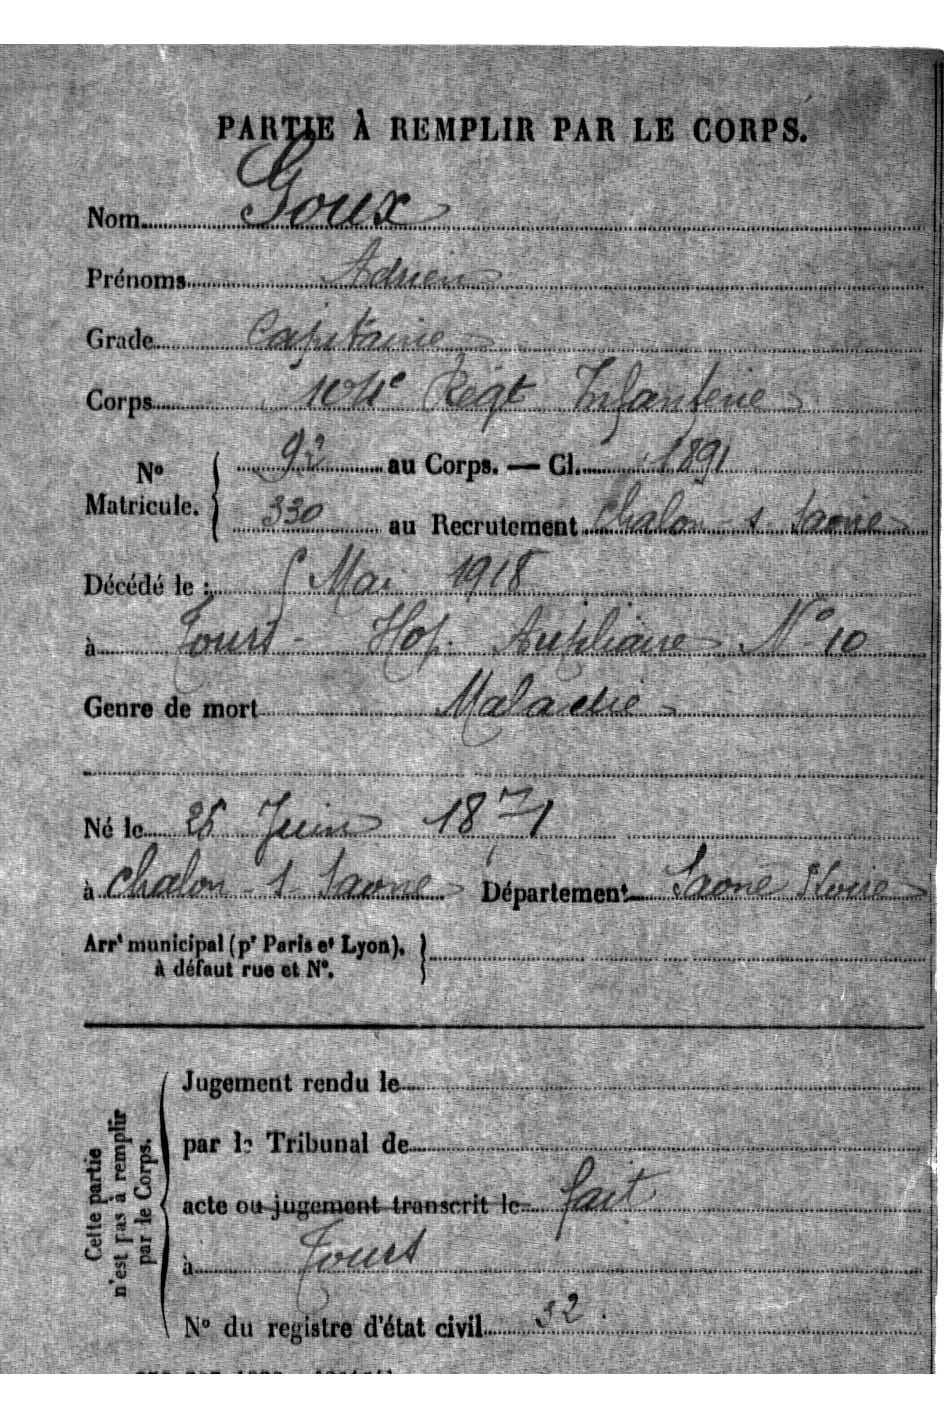 PARTIE À REMPLIR PAR LE CORPS.
Nom Goux
Prénoms Adrien
Grade Capitaine
Corps 104e Régt Infanterie
No Matricule. 92 au Corps. — Cl. 1891
330 au Recrutement Chalon-s-Saone
Décédé le : 5 Mai 1918
à Tours - Hop. Auxiliaire No 10
Genre de mort Maladie
Né le 25 Juin 1871
à Chalon-s-Saone Département Saone Loire
Arrt municipal (pr Paris et Lyon),
à défaut rue et No.
Cette partie
n'est pas à remplir
par le Corps.
Jugement rendu le
par le Tribunal de
acte ou jugement transcrit le fait
à Tours
No du registre d'état civil 32